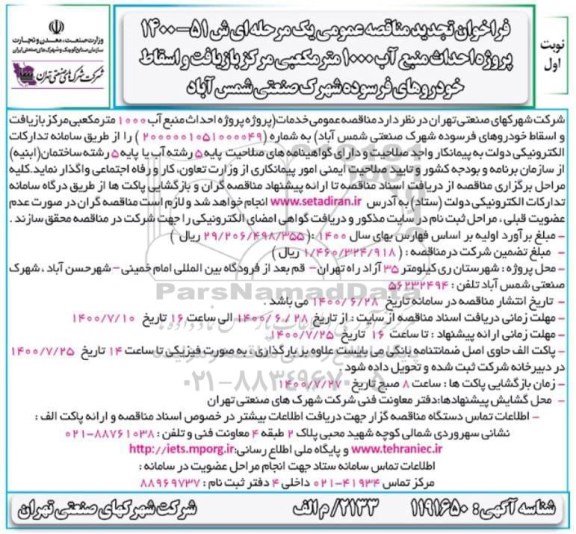 وزارت صنعت، معدن و تجارت
سازمان صنایع کوچک و شهرکهای صنعتی ایران
شرکت شهرکهای صنعتی تهران
نوبت اول
فراخوان تجدید مناقصه عمومی یک مرحله ای ش ۵۱-۱۴۰۰
پروژه احداث منبع آب ۱۰۰۰ متر مکعبی مرکز بازیافت و اسقاط
خودروهای فرسوده شهرک صنعتی شمس آباد
شرکت شهرکهای صنعتی تهران در نظر دارد مناقصه عمومی خدمات(پروژه پروژه احداث منبع آب ۱۰۰۰ متر مکعبی مرکز بازیافت
و اسقاط خودروهای فرسوده شهرک صنعتی شمس آباد) به شماره (۲۰۰۰۰۰۱۰۵۱۰۰۰۰۴۹) را از طریق سامانه تدارکات
الکترونیکی دولت به پیمانکار واجد صلاحیت و دارای گواهینامه های صلاحیت پایه ۵ رشته آب یا پایه ۵ رشته ساختمان(ابنیه)
از سازمان برنامه و بودجه کشور و تایید صلاحیت ایمنی امور پیمانکاری از وزارت تعاون، کار و رفاه اجتماعی واگذار نماید.کلیه
مراحل برگزاری مناقصه از دریافت اسناد مناقصه تا ارائه پیشنهاد مناقصه گران و بازگشایی پاکت ها از طریق درگاه سامانه
تدارکات الکترونیکی دولت (ستاد) به آدرس www.setadiran.ir انجام خواهد شد و لازم است مناقصه گران در صورت عدم
عضویت قبلی، مراحل ثبت نام در سایت مذکور و دریافت گواهی امضای الکترونیکی را جهت شرکت در مناقصه محقق سازند.
- مبلغ برآورد اولیه بر اساس فهارس بهای سال ۱۴۰۰ : (۲۹/۲۰۶/۴۹۸/۳۵۵ ریال)
- مبلغ تضمین شرکت در مناقصه : (۱/۴۶۰/۳۲۴/۹۱۸ ریال)
- محل پروژه : شهرستان ری کیلومتر ۳۵ آزاد راه تهران - قم بعد از فرودگاه بین المللی امام خمینی - شهر حسن آباد ، شهرک
صنعتی شمس آباد تلفن : ۵۶۲۳۲۴۹۴
- تاریخ انتشار مناقصه در سامانه تاریخ ۱۴۰۰/۶/۲۸ می باشد .
- مهلت زمانی دریافت اسناد مناقصه از سایت : از تاریخ ۱۴۰۰/۶/۲۸ الی ساعت ۱۶ تاریخ ۱۴۰۰/۷/۱۰
- مهلت زمانی ارائه پیشنهاد : تا ساعت ۱۶ تاریخ ۱۴۰۰/۷/۲۵
- پاکت الف حاوی اصل ضمانتنامه بانکی می بایست علاوه بر بارگذاری ، به صورت فیزیکی تا ساعت ۱۴ تاریخ ۱۴۰۰/۷/۲۵
در دبیرخانه شرکت ثبت شده و تحویل داده شود .
- زمان بازگشایی پاکت ها : ساعت ۸ صبح تاریخ ۱۴۰۰/۷/۲۷
- محل گشایش پیشنهادها:دفتر معاونت فنی شرکت شهرک های صنعتی تهران
- اطلاعات تماس دستگاه مناقصه گزار جهت دریافت اطلاعات بیشتر در خصوص اسناد مناقصه و ارائه پاکت الف :
نشانی سهروردی شمالی کوچه شهید محبی پلاک ۲ طبقه ۴ معاونت فنی و تلفن : ۸۸۷۶۱۰۳۸-۰۲۱
www.tehraniec.ir و پایگاه ملی اطلاع رسانی: http://iets.mporg.ir
اطلاعات تماس سامانه ستاد جهت انجام مراحل عضویت در سامانه :
مرکز تماس ۴۱۹۳۴-۰۲۱ داخلی ۴ دفتر ثبت نام : ۸۸۹۶۹۷۳۷
ParsNamadData
۰۲۱-۸۸۳۴۹۶۷۰
شناسه آگهی: ۱۱۹۱۶۵۰
۲۱۳۳/ م الف
شرکت شهرکهای صنعتی تهران